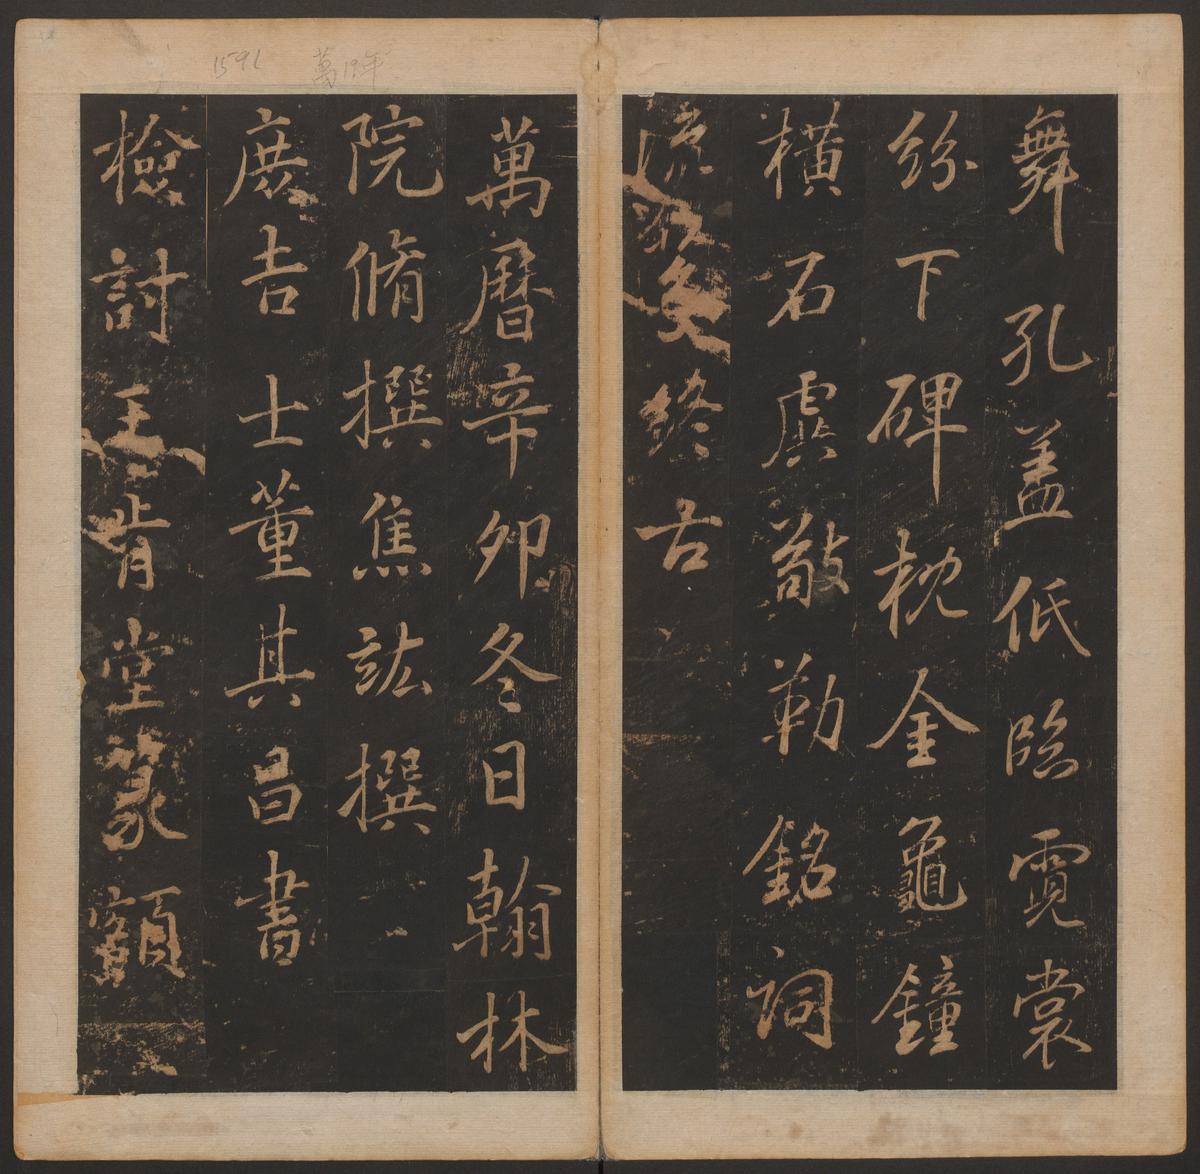 舞孔盖低臨霓裳
紛下碑枕金龜鐘
横石虡敲勒銘詞
終古
萬曆辛卯冬日翰林
院脩撰焦竑撰
庶吉士董其昌書
檢討王肯堂篆額
1591
萬19年